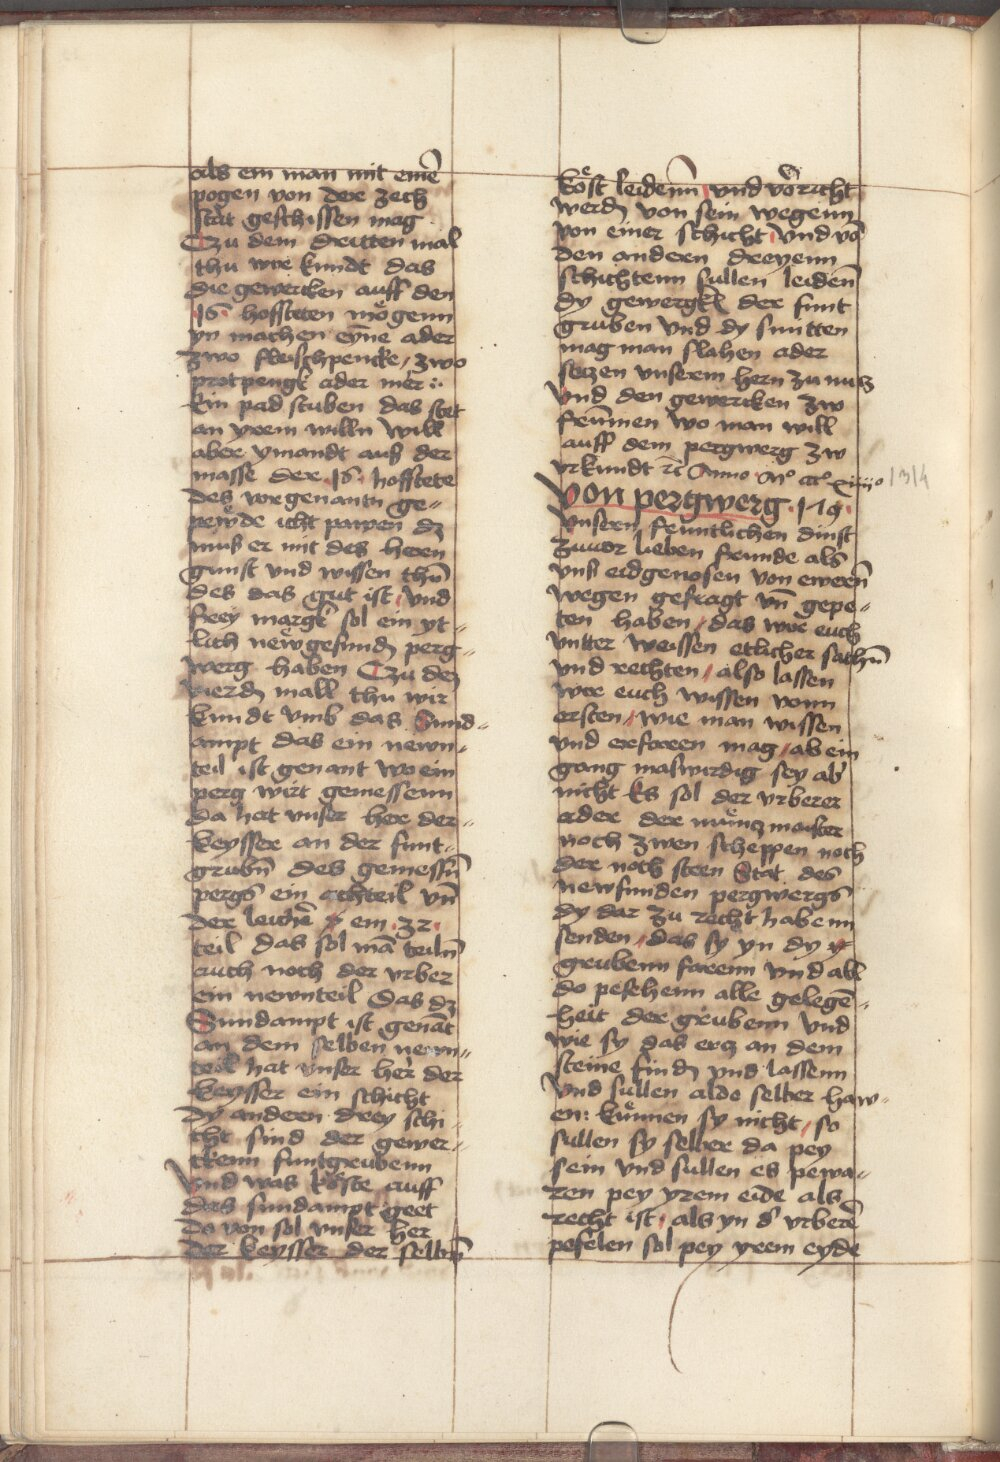 als ein man mit einē
pogen von der zech
stat geschissen mag
Czu dem dritten mal
thu wir kundt das
die gewercken auff den
.16. hofsteten mögenn
yn machen eyne ader
zwo fleischpencke / zwo
protpengk ader mer :
Ein pad stuben das stet
an yrem willn will
aber ymandt auß der
masse der .16. hofstete
des vorgenantn ge-
pewde icht pawen dz
muß er mit des heren
gunst und wissen thūn
des das gut ist und
frey margk sol ein yt-
lich new gefunden perg-
werg haben Czu dem
vierden mall thu wir
kundt umb das Sund-
ampt das ein newn-
teil ist genant wo ein
perg wirt gemessenn
da hat unser her der-
keysser an der funt-
grubn des gemessn
pergs ein achteil un
der leichē ein .32.
teil das sol mā teiln
auch noch der urber
ein newnteil das dz
Sundampt ist genāt
an dem selben newn-
teil hat unser her der
keysser ein schicht
dy anderen drey schi-
cht sind der gewer-
ckenn funtgrubenn
und was köste auff
das sundampt geet
do von sol unser her
der keysser der selbn
köst leidenn und vorricht
werden von sein wegenn
von einer schicht und von
den anderen dreyenn
schichtenn sullen leiden
dy gewergkn der funt
gruben und dy smitten
mag man slahen ader
seczen unserem hern zu nucz
und den gewercken zw
frummen wo man will
auff dem pergwerg zw
urkundt etc Anno Mo ccco xiiiio 1314
Von pergwerg .119.
Unsern fruntlichen dinst
zuuor lieben frunde als
uns eidgenosen von eweren
wegen gefragt un gepe-
ten haben / das wir euch
untter weissen etlicher sachn
und rechten / also lassen
wir euch wissen vonn
ersten / wie man wissen
und erfaren mag / ab ein
gang maswirdig sey ab
nicht Es sol der urberer
ader der münczmaister
noch zwen scheppen noch
der noch steen Stat des
newfunden pergwergs
dy dar zu recht habenn
senden / das sy yn dy
grubenn farenn und all
do pesehenn alle gelegē-
heit der grubenn und
wie sy das ercz an dem
steine finden und lassenn
und sullen aldo selber haw-
en: kunnen sy nicht / so
sullen sy selber da pey
sein und sullen es pewa-
ren pey yrem eide als
recht ist / als yn d' urberer
pefelen sol pey yrem eyde